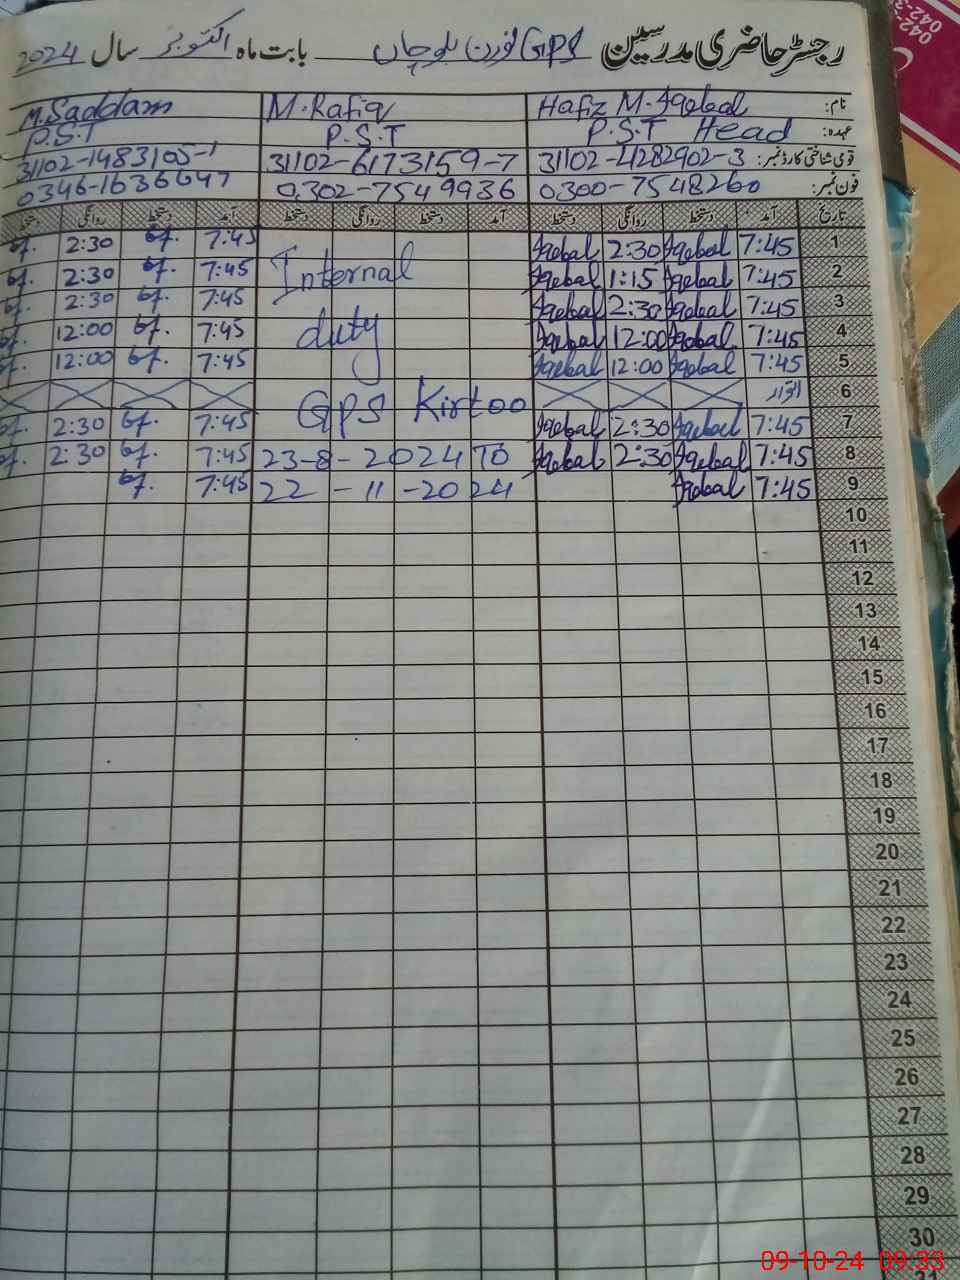 رجسٹر حاضری مدرسین GPS نورن بلوچاں بابت ماہ اکتوبر سال 2024
نام: Hafiz M. Iqebal M. Rafiq M. Saddam
عہدہ: P.S.T Head P.S.T P.S.T
قومی شناختی کارڈ نمبر: 31102-4282902-3 31102-6173159-7 31102-1483105-1
فون نمبر: 0300-7548260 0302-7549936 0346-1636647
تاریخ آمد دستخط روانگی دستخط آمد دستخط روانگی دستخط آمد دستخط روانگی دستخط
1 7:45 Iqebal 2:30 Iqebal 7:45 2:30
2 7:45 Iqebal 1:15 Iqebal Internal 7:45 2:30
3 7:45 Iqebal 2:30 Iqebal 7:45 2:30
4 7:45 Iqebal 12:00 Iqebal duty 7:45 12:00
5 7:45 Iqebal 12:00 Iqebal 7:45 12:00
6 اتوار Gps Kirtoo
7 7:45 Iqebal 2:30 Iqebal 7:45 2:30
8 7:45 Iqebal 2:30 Iqebal 23-8-2024 TO 7:45 2:30
9 7:45 Iqebal 22-11-2024 7:45
10
11
12
13
14
15
16
17
18
19
20
21
22
23
24
25
26
27
28
29
30
09-10-24 09:33